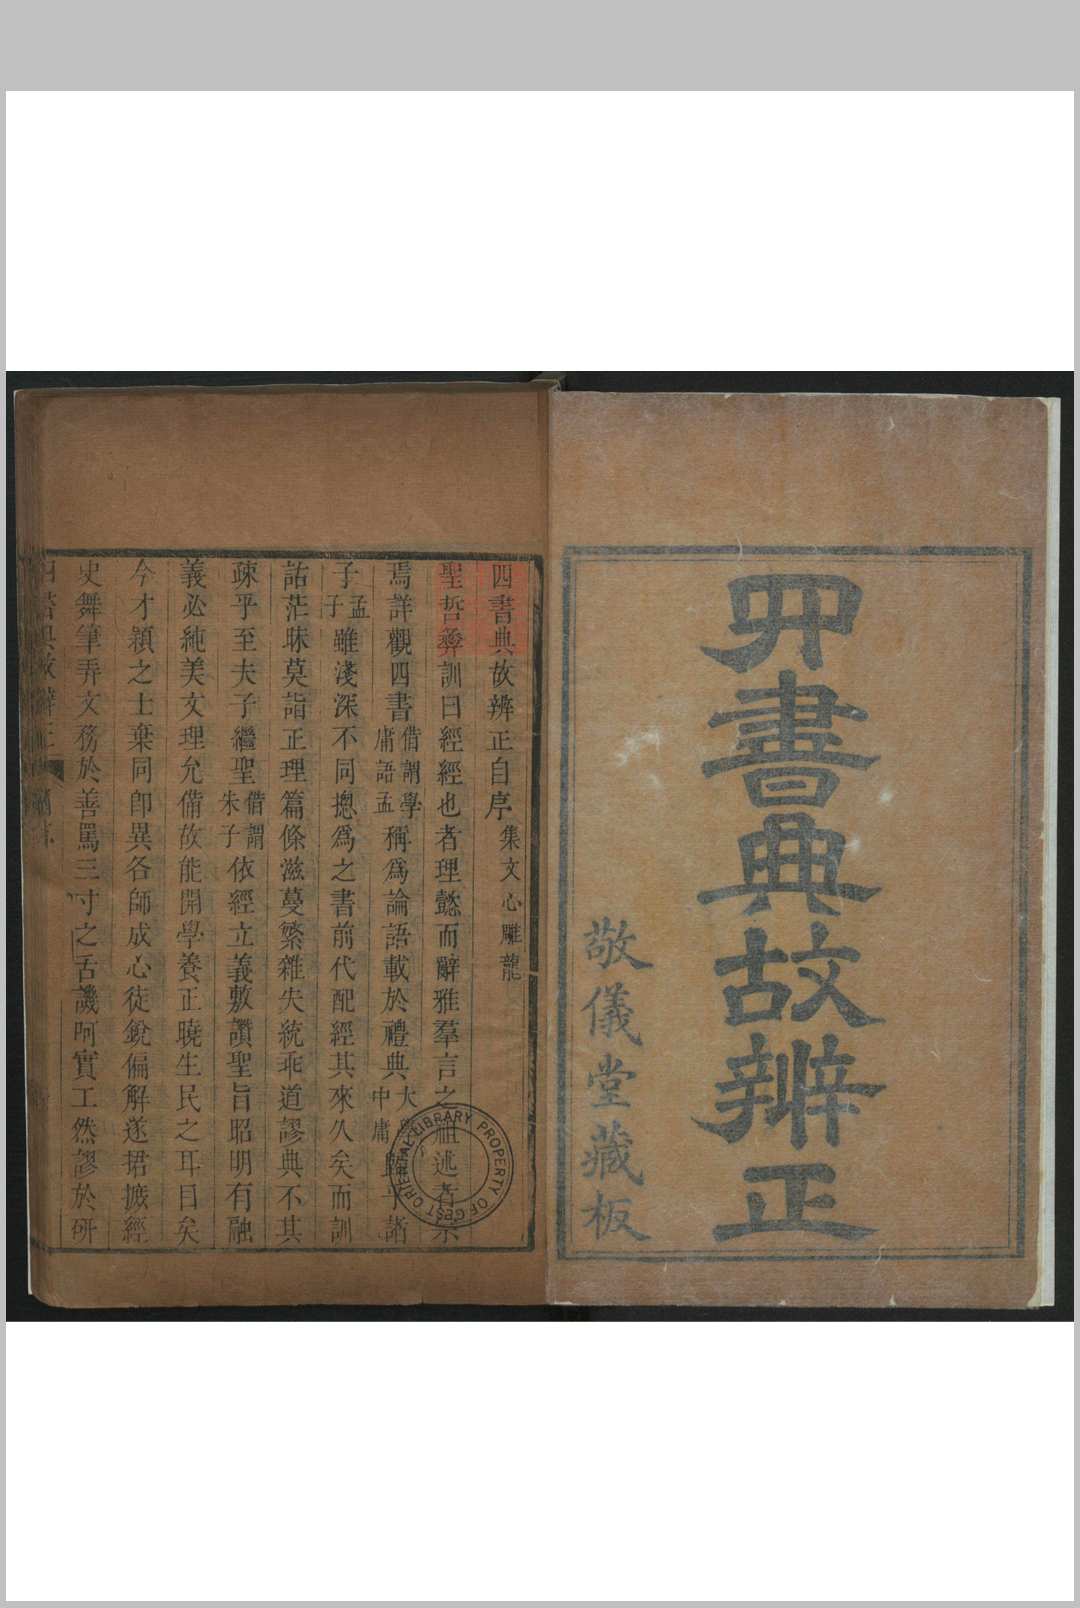 四書典故辨正
敬儀堂藏板
四書典故辨正自序集文心雕龍
聖哲彝訓曰經經也者理懿而辭雅羣言之祖述者宗
焉詳觀四書借謂學庸語孟稱爲論語載於禮典大中庸歸乎諸
子孟子雖淺深不同摠爲之書前代配經其來久矣而訓
詁茫昧莫詣正理篇條滋蔓繁雜失統乖道謬典不其
疎乎至夫子繼聖借謂朱子依經立義敷讚聖旨昭明有融
義必純美文理允備故能開學養正曉生民之耳目矣
今才穎之士棄同卽異各師成心徒銳偏解遂捃摭經
史舞筆弄文務於善罵三寸之舌譏呵實工然謬於研
GEST ORIENTAL LIBRARY PROPERTY OF